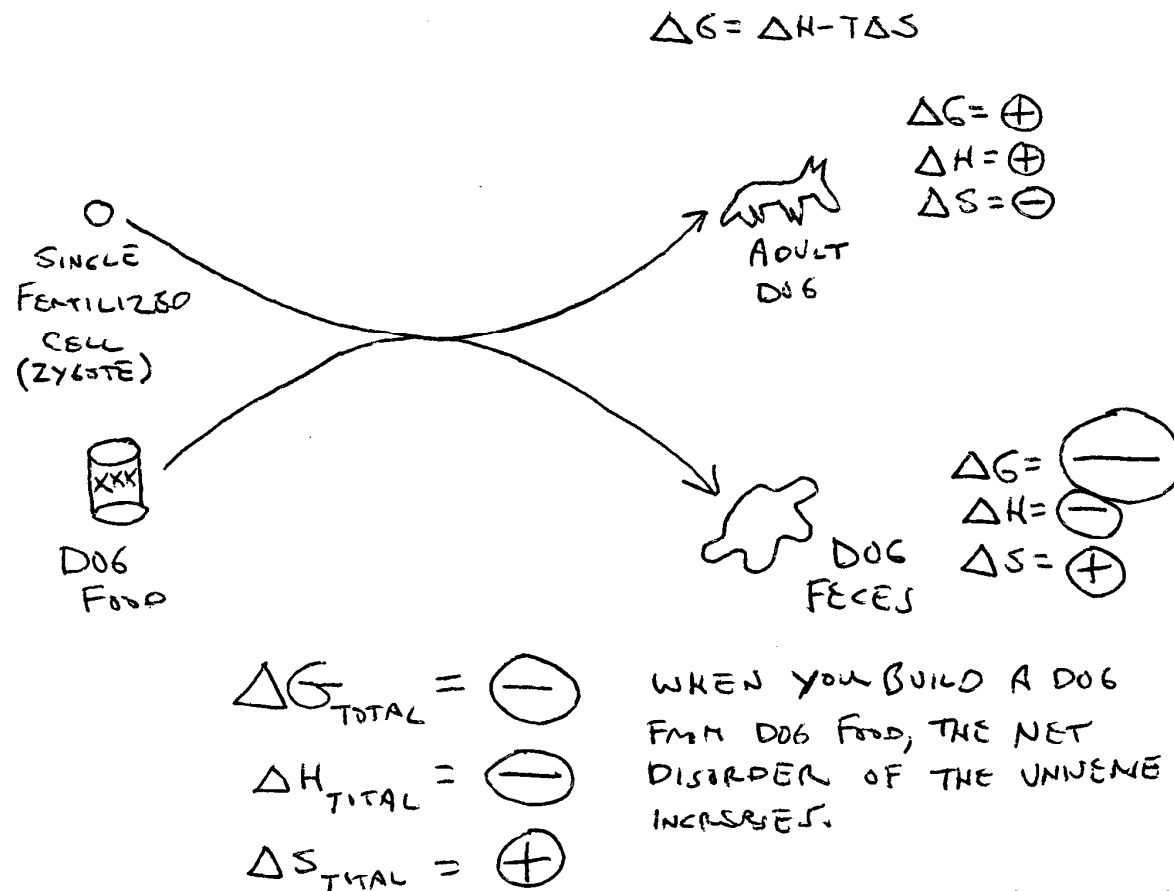 ΔG = ΔH-TΔS
ΔG = ⊕
ΔH = ⊕
ΔS = ⊖
SINGLE
FERTILIZED
CELL
(ZYGOTE)
ADULT
DOG
XXX
DOG
FOOD
DOG
FECES
ΔG = ⊖
ΔH = ⊖
ΔS = ⊕
ΔG TOTAL = ⊖
ΔH TOTAL = ⊖
ΔS TOTAL = ⊕
WHEN YOU BUILD A DOG
FROM DOG FOOD, THE NET
DISORDER OF THE UNIVERSE
INCREASES.